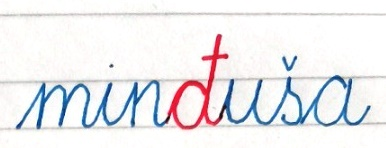 minđuša